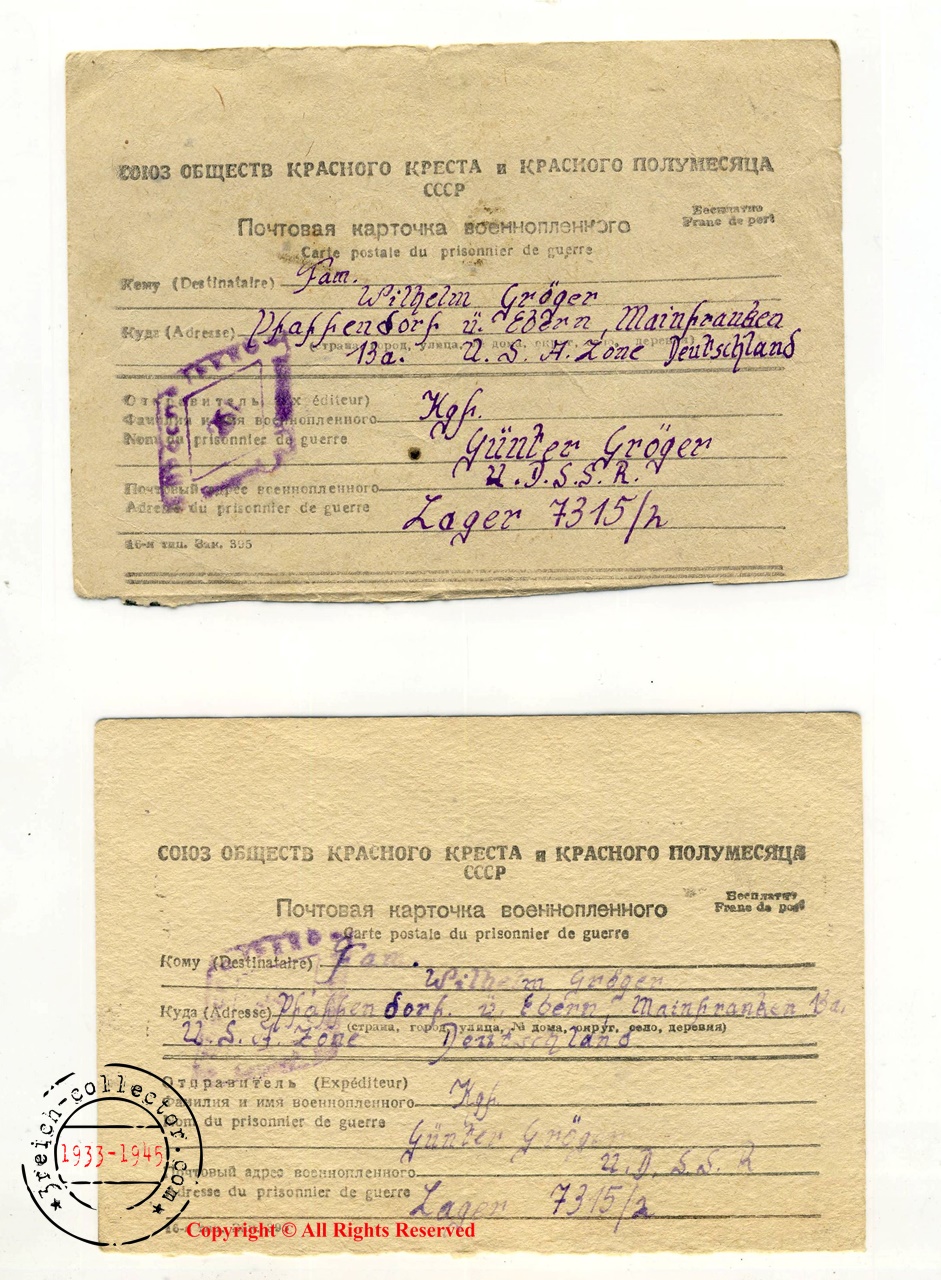 СОЮЗ ОБЩЕСТВ КРАСНОГО КРЕСТА и КРАСНОГО ПОЛУМЕСЯЦА
СССР
Бесплатно
Franc de port
Почтовая карточка военнопленного
Carte postale du prisonnier de guerre
Кому (Destinataire) Fam.
Wilhelm Gröger
Куда (Adresse) Pfaffendorf ü. Ebern, Mainfranken
(страна, город, улица, № дома, округ, село, деревня)
13a. U.S.A. Zone Deutschland
Отправитель (Expéditeur)
Фамилия и имя военнопленного Kgf.
Nom du prisonnier de guerre
Günter Gröger
U.D.S.S.R.
Почтовый адрес военнопленного
Adresse du prisonnier de guerre Lager 7315/2
16-я тип. Зак. 395
СОЮЗ ОБЩЕСТВ КРАСНОГО КРЕСТА и КРАСНОГО ПОЛУМЕСЯЦА
СССР
Бесплатно
Franc de port
Почтовая карточка военнопленного
Carte postale du prisonnier de guerre
Кому (Destinataire) Fam.
Wilhelm Gröger
Куда (Adresse) Pfaffendorf. ü. Ebern, Mainfranken 13a.
(страна, город, улица, № дома, округ, село, деревня)
U.S.A. Zone Deutschland
Отправитель (Expéditeur)
Фамилия и имя военнопленного Kgf.
Nom du prisonnier de guerre
Günter Gröger
U.D.S.S.R
Почтовый адрес военнопленного
Adresse du prisonnier de guerre Lager 7315/2
3reich-collector.com
1933-1945
Copyright © All Rights Reserved